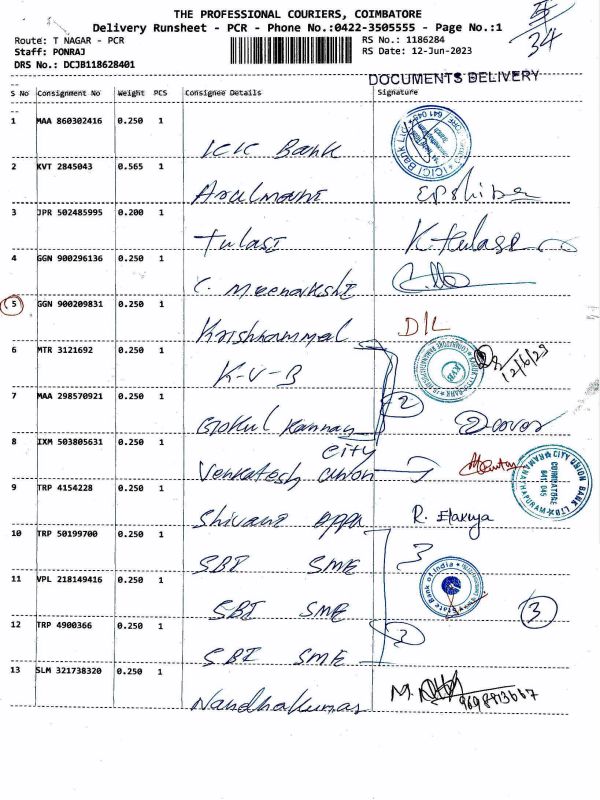 THE PROFESSIONAL COURIERS, COIMBATORE
Delivery Runsheet - PCR - Phone No.:0422-3505555 - Page No.:1
Route: T NAGAR - PCR
RS No.: 1186284
Staff: PONRAJ
RS Date: 12-Jun-2023
DRS No.: DCJB118628401
34
DOCUMENTS DELIVERY
S No Consignment No Weight PCS Consignee Details Signature
1 MAA 860302416 0.250 1
ICIC Bank
ICICI Bank Ltd
2 KVT 2845043 0.565 1
Arulmouni Epshiba
3 JPR 502485995 0.200 1
Tulasi K. Tulasi
4 GGN 900296136 0.250 1
C. Meenakshi
5 GGN 900209831 0.250 1
Krishnammal D/L
6 MTR 3121692 0.250 1
K-V-B
KVB
12/6/23
7 MAA 298570921 0.250 1
Gokul Kannan
2
8 IXM 503805631 0.250 1
City
Venkatesh union
CITY UNION BANK LTD
COIMBATORE
641 045
RAMANATHAPURAM
9 TRP 4154228 0.250 1
Shivani appa R. Elakiya
10 TRP 50199700 0.250 1
SBI SME
3
11 VPL 218149416 0.250 1
SBI SME
State Bank of India
3
12 TRP 4900366 0.250 1
SBI SME
3
13 SLM 321738320 0.250 1
Nandhakumar